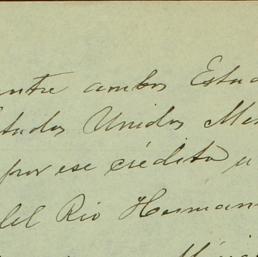 entre ambos Esta
stados Unidos Me
por ese crédito
del Rio Herman